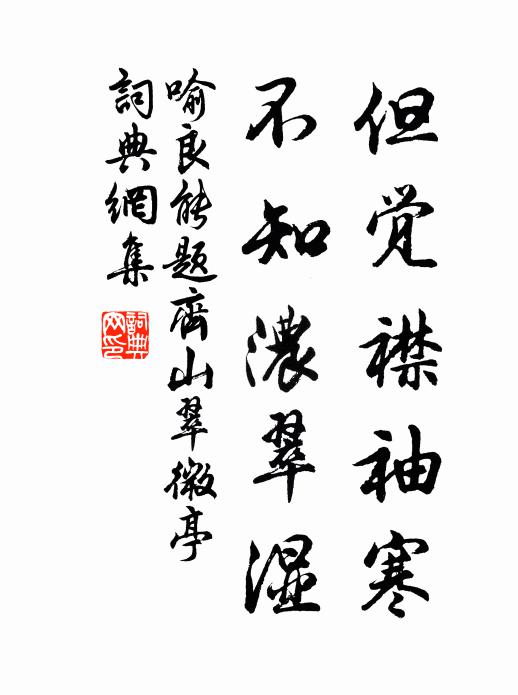 但觉襟袖寒
不知濃翠湿
喻良能题齊山翠微亭
詞典網集
詞典网印